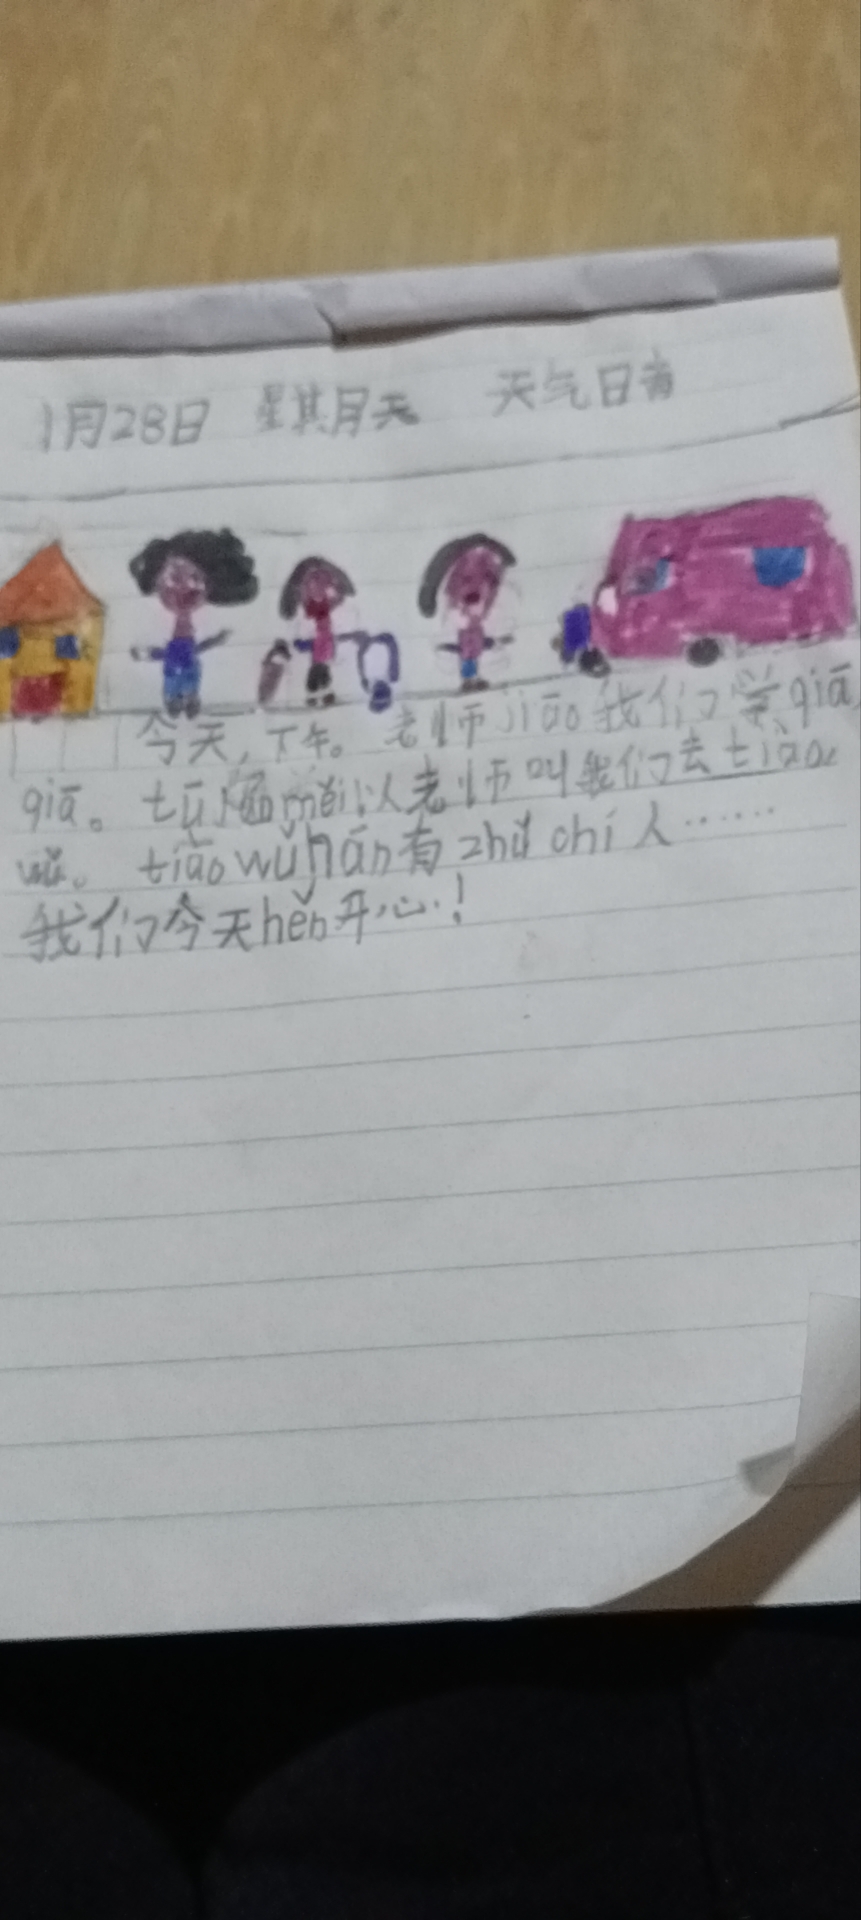 1月28日 星其月天 天气日青
今天,下午。老师jiāo我们学qiā
qiā。tū rán měi以老师叫我们去tiào
wǔ。tiào wǔ hán有zhǔ chí人……
我们今天hěn开心!